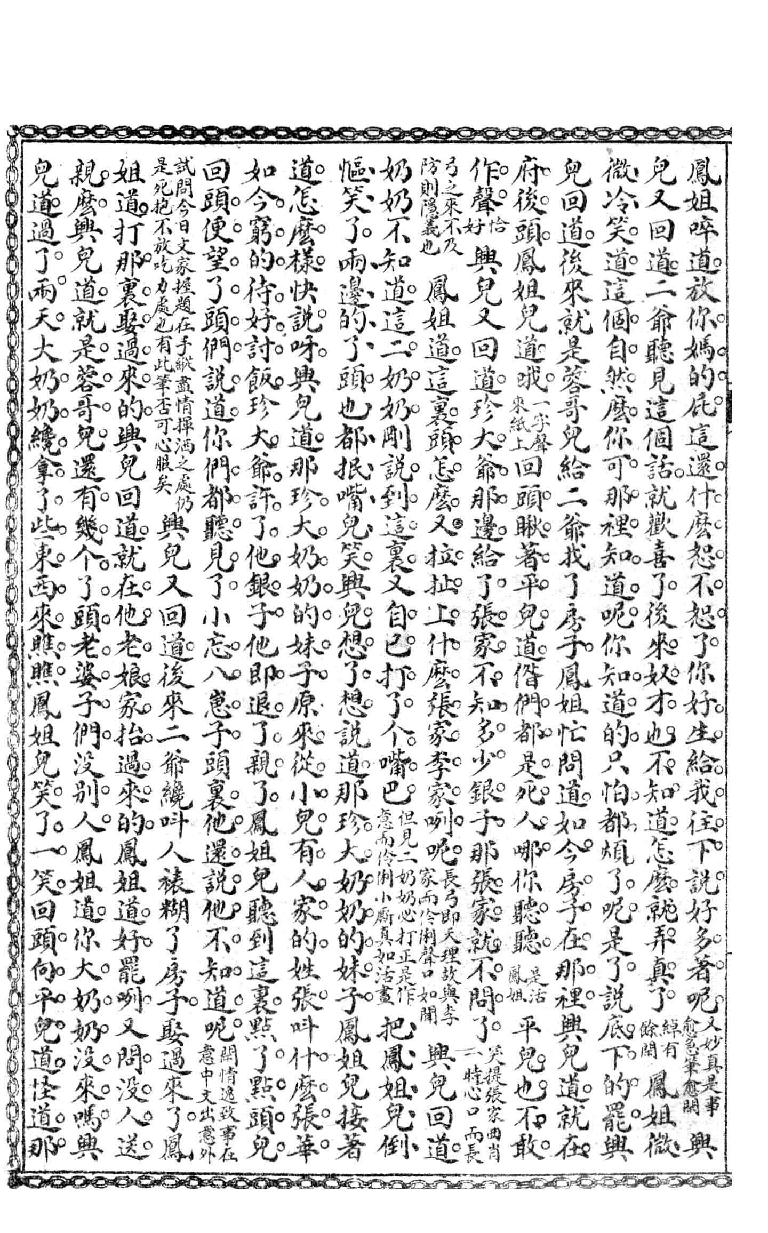 鳳姐啐道放你媽的屁這還什麽恕不恕了你好生給我往下說好多著呢又妙真是事愈急筆愈閒興
兒又回道二爺聽見這個話就歡喜了後來奴才也不知道怎麽就弄真了綽有餘閒鳳姐微
微冷笑道這個自然麽你可那裡知道呢你知道的只怕都煩了呢是了說底下的罷興
兒回道後來就是蓉哥兒給二爺找了房子鳳姐忙問道如今房子在那裡興兒道就在
府後頭鳳姐兒道哦一字聲來紙上回頭瞅著平兒道偺們都是死人哪你聽聽是活鳳姐平兒也不敢
作聲恰好興兒又回道珍大爺那邊給了張家不知多少銀子那張家就不問了笑提張家曲肖一時心口而長
弓之來不及防則隱義也鳳姐道這裏頭怎麽又拉扯上什麽張家李家咧呢長弓即天理故與李家而伶俐聲口如聞興兒回道
奶奶不知道這二奶奶剛說到這裏又自己打了个嘴巴但見二奶奶必打正是作意而伶俐小廝真如活畫把鳳姐兒倒
慪笑了兩邊的丫頭也都抿嘴兒笑興兒想了想說道那珍大奶奶的妹子鳳姐兒接著
道怎麽樣快說呀興兒道那珍大奶奶的妹子原來從小兒有人家的姓張叫什麽張華
如今窮的待好討飯珍大爺許了他銀子他即退了親了鳳姐兒聽到這裏點了點頭兒
回頭便望了頭們說道你們都聽見了小忘八崽子頭裏他還說他不知道呢閒情逸致事在意中文出意外
試問今日文家握題在手縱盡情揮洒之處仍是死抱不放吃力處也有此筆舌可心眼矣興兒又回道後來二爺纔叫人裱糊了房子娶過來了鳳
姐道打那裏娶過來的興兒回道就在他老娘家抬過來的鳳姐道好罷咧又問没人送
親麽興兒道就是蓉哥兒還有幾个丫頭老婆子們没别人鳳姐道你大奶奶没來嗎興
兒道過了兩天大奶奶纔拿了些東西來瞧瞧鳳姐兒笑了一笑回頭向平兒道怪道那